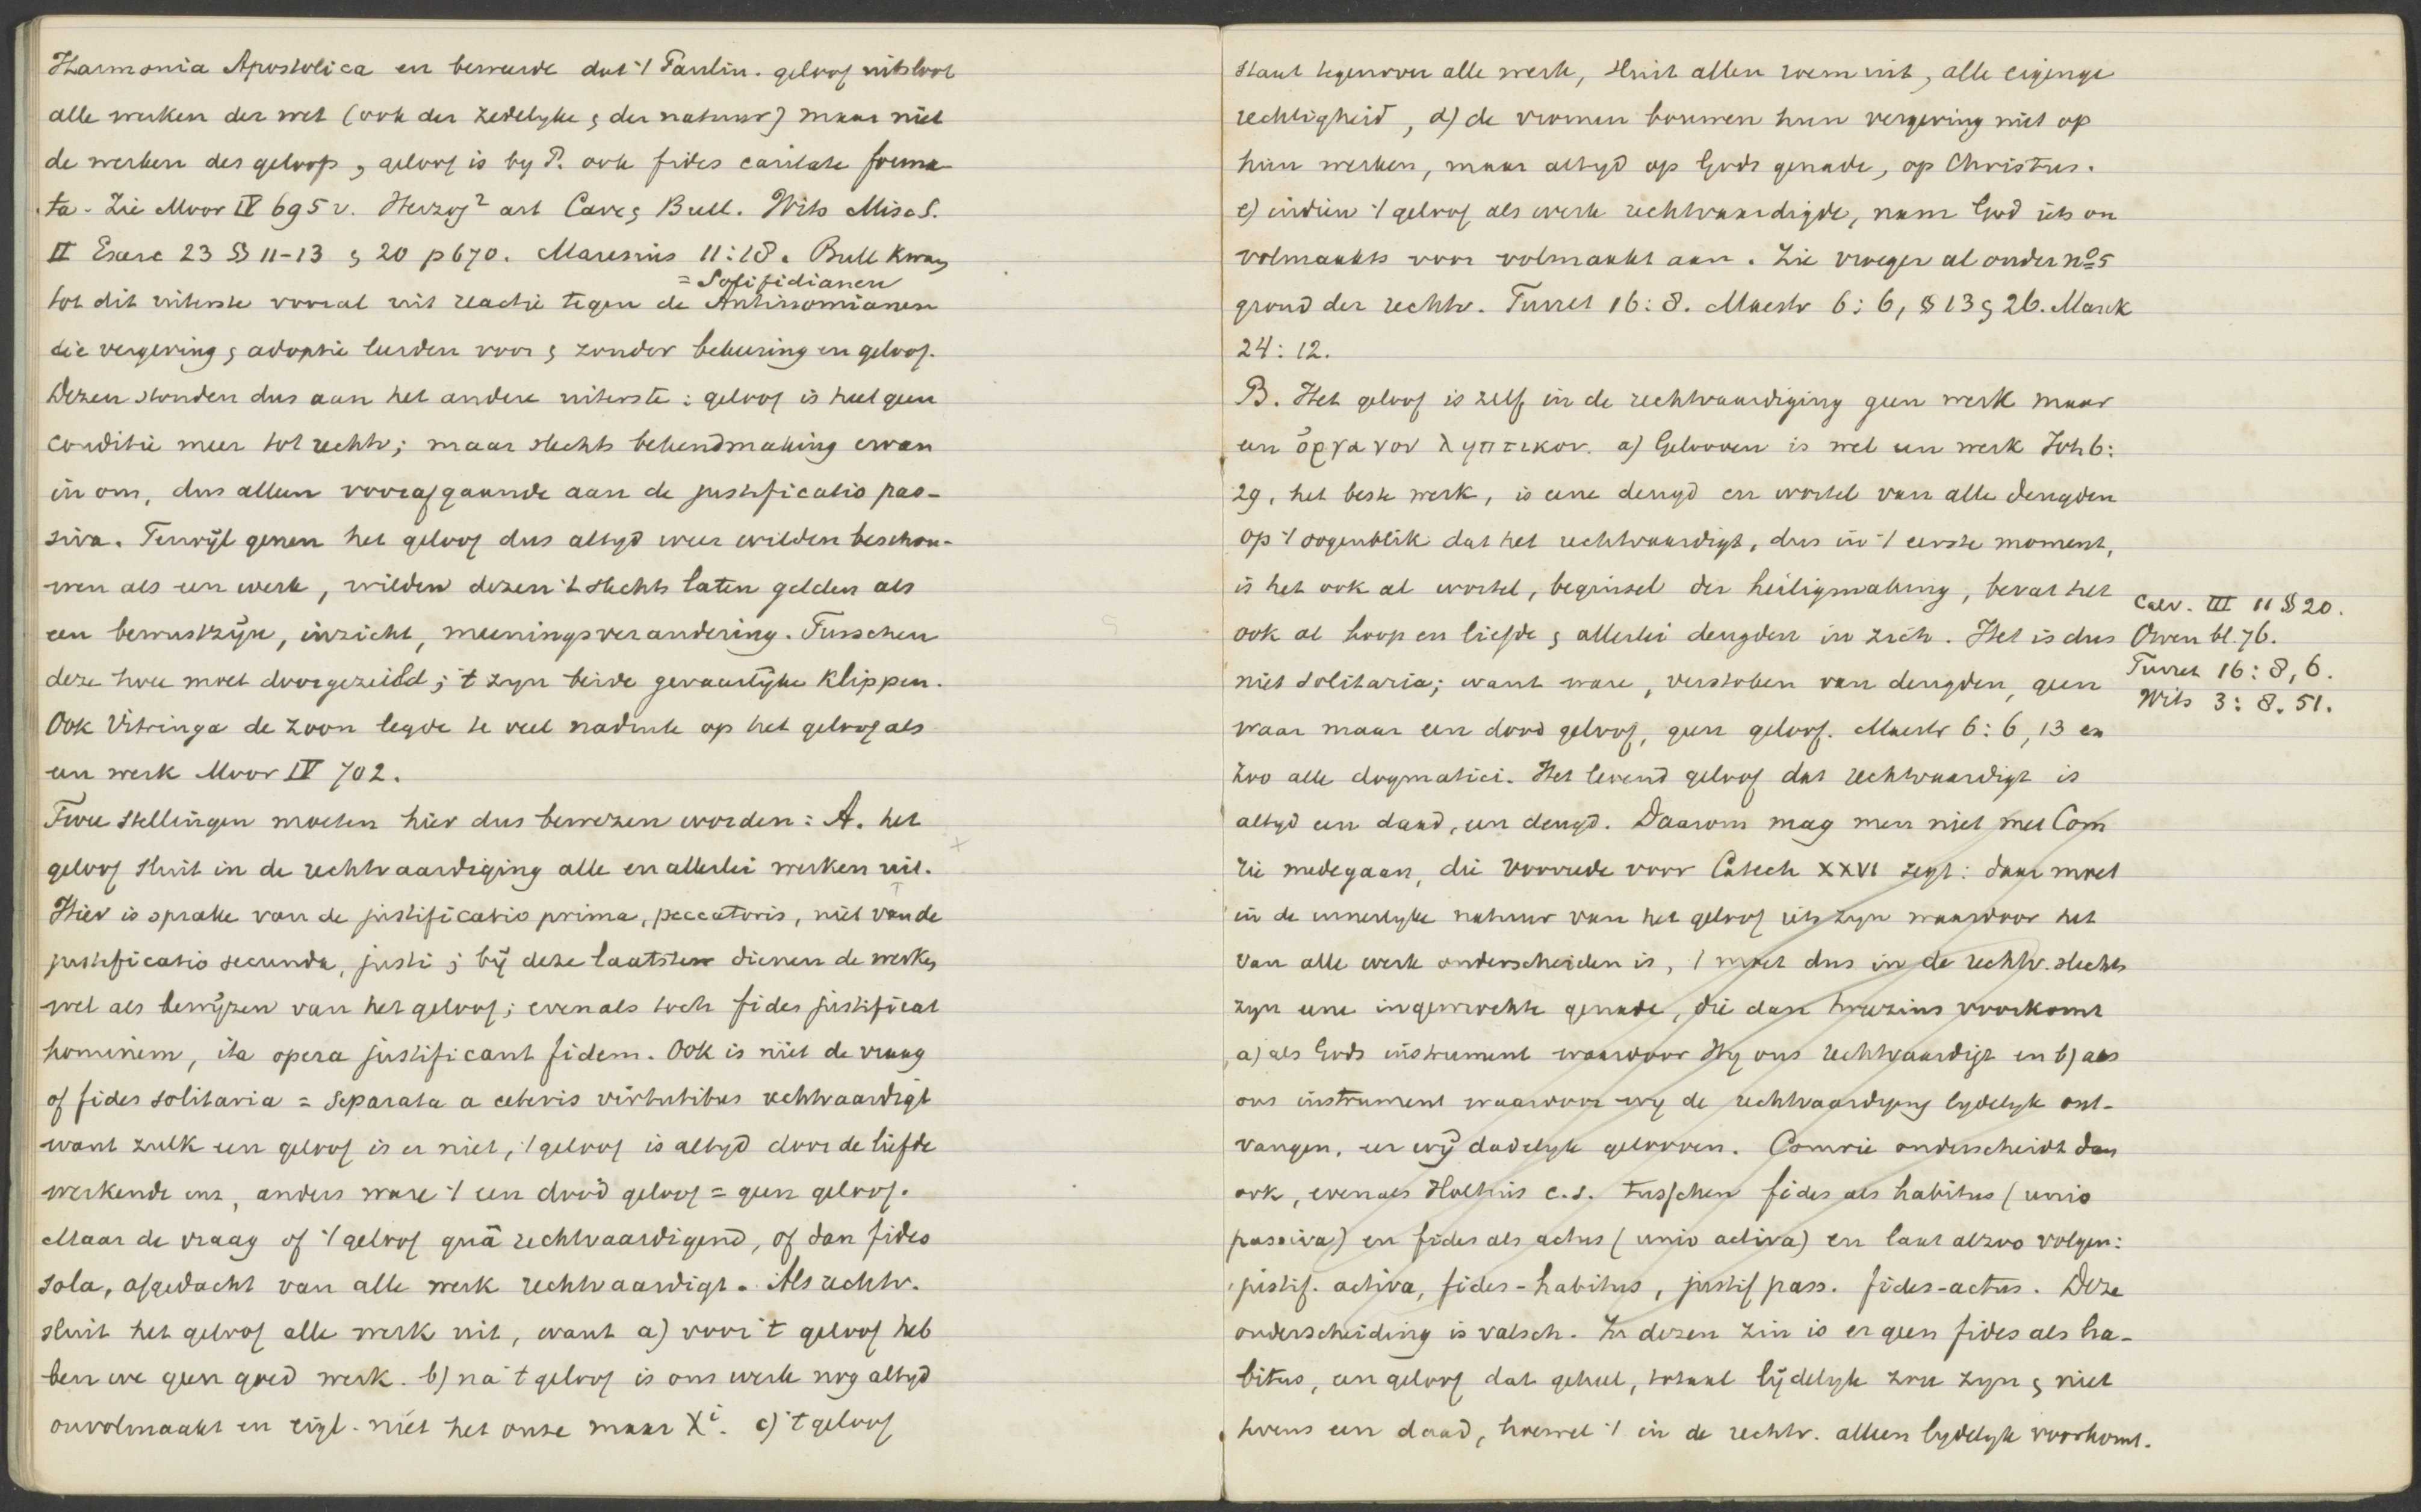 Harmonia Apostolica en beweerde dat 't Paulin. geloof uitsloot
alle werken der wet (ook der zedelyke & der natuur) maar niet
de werken des geloofs, geloof is by P. ook fides caritate forma-
ta. Zie Moor IV 695 v. Herzog² art Cave & Bull. Wits Misc S.
II Exerc 23 §§ 11-13 & 20 p 670. Maresius 11:18. Bull kwam
= Solifidianen
tot dit uiterste vooral uit reactie tegen de Antinomianen
die vergeving & adoptie leerden voor & zonder bekeering en geloof.
Dezen stonden dus aan het andere uiterste: geloof is heel geen
conditie meer tot rechtv; maar slechts bekendmaking ervan
in ons, dus alleen voorafgaande aan de justificatio pas-
siva. Terwijl genen het geloof dus altyd weer wilden beschou-
wen als een werk, wilden dezen 't slechts laten gelden als
een bewustzijn, inzicht, meeningsverandering. Tusschen
deze twee moet doorgezeild; 't zyn beide gevaarlijke klippen.
Ook Vitringa de zoon legde te veel nadruk op het geloof als
een werk Moor IV 702.
Twee stellingen moeten hier dus bewezen worden: A. het
geloof sluit in de rechtvaardiging alle en allerlei werken uit.
Hier is sprake van de justificatio prima, peccatoris, niet van de
justificatio secunda, justi; bij deze laatsten dienen de werken
wel als bewijzen van het geloof; evenals toch fides justificat
hominem, ita opera justificant fidem. Ook is niet de vraag
of fides solitaria = separata a ceteris virtutibus rechtvaardigt
want zulk een geloof is er niet, 't geloof is altyd door de liefde
werkende enz, anders ware 't een dood geloof = geen geloof.
Maar de vraag of 't geloof quâ rechtvaardigend, of dan fides
sola, afgedacht van alle werk rechtvaardigt. Als rechtv.
sluit het geloof alle werk uit, want a) voor 't geloof heb
ben we geen goed werk. b) na 't geloof is ons werk nog altyd
onvolmaakt en eigl. niet het onze maar Xi. c) 't geloof
staat tegenover alle werk, sluit allen roem uit, alle eigenge
rechtigheid, d) de vromen bouwen hun vergeving niet op
hun werken, maar altyd op Gods genade, op Christus.
e) indien 't geloof als werk rechtvaardigde, nam God iets on
volmaakts voor volmaakt aan. Zie vroeger al onder no 5
grond der rechtv. Turret 16:8. Maestr 6:6, § 13 & 26. Marck
24:12.
B. Het geloof is zelf in de rechtvaardiging geen werk maar
een ὄργανον ληπτικον. a) Gelooven is wel een werk Joh 6:
29, het beste werk, is eene deugd en wortel van alle deugden
op 't oogenblik dat het rechtvaardigt, dus in 't eerste moment,
is het ook al wortel, beginsel der heiligmaking, bevat het
ook al hoop en liefde & allerlei deugden in zich. Het is dus
niet solitaria; want ware, verstoken van deugden, geen
waar maar een dood geloof, geen geloof. Maestr 6:6, 13 en
zoo alle dogmatici. Het levend geloof dat rechtvaardigt is
altyd een daad, een deugd. Daarom mag men niet met Com
rie medegaan, die Voorrede voor Catech XXVI zegt: daar moet
in de innerlyke natuur van het geloof iets zyn waardoor het
van alle werk onderscheiden is, 't moet dus in de rechtv. slechts
zyn eene ingewrochte genade, die dan tweezins voorkomt
a) als Gods instrument waardoor Hy ons rechtvaardigt en b) als
ons instrument waardoor wy de rechtvaardiging lydelyk ont-
vangen, eer wij dadelyk gelooven. Comrie onderscheidt dan
ook, evenals Holtius c.s. tusschen fides als habitus (unio
passiva) en fides als actus (unio activa) en laat alzoo volgen:
justif. activa, fides-habitus, justif pass. fides-actus. Deze
onderscheiding is valsch. In dezen zin is er geen fides als ha-
bitus, een geloof dat geheel, totaal lijdelyk zou zyn & niet
tevens een daad, hoewel 't in de rechtv. alleen lydelyk voorkomt.
Calv. III 11 § 20.
Owen bl. 76.
Turret 16:8, 6.
Wits 3:8.51.